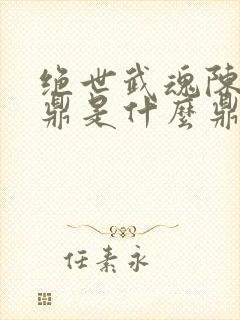 绝世武魂陈
鼎是什麼鼎
任素永